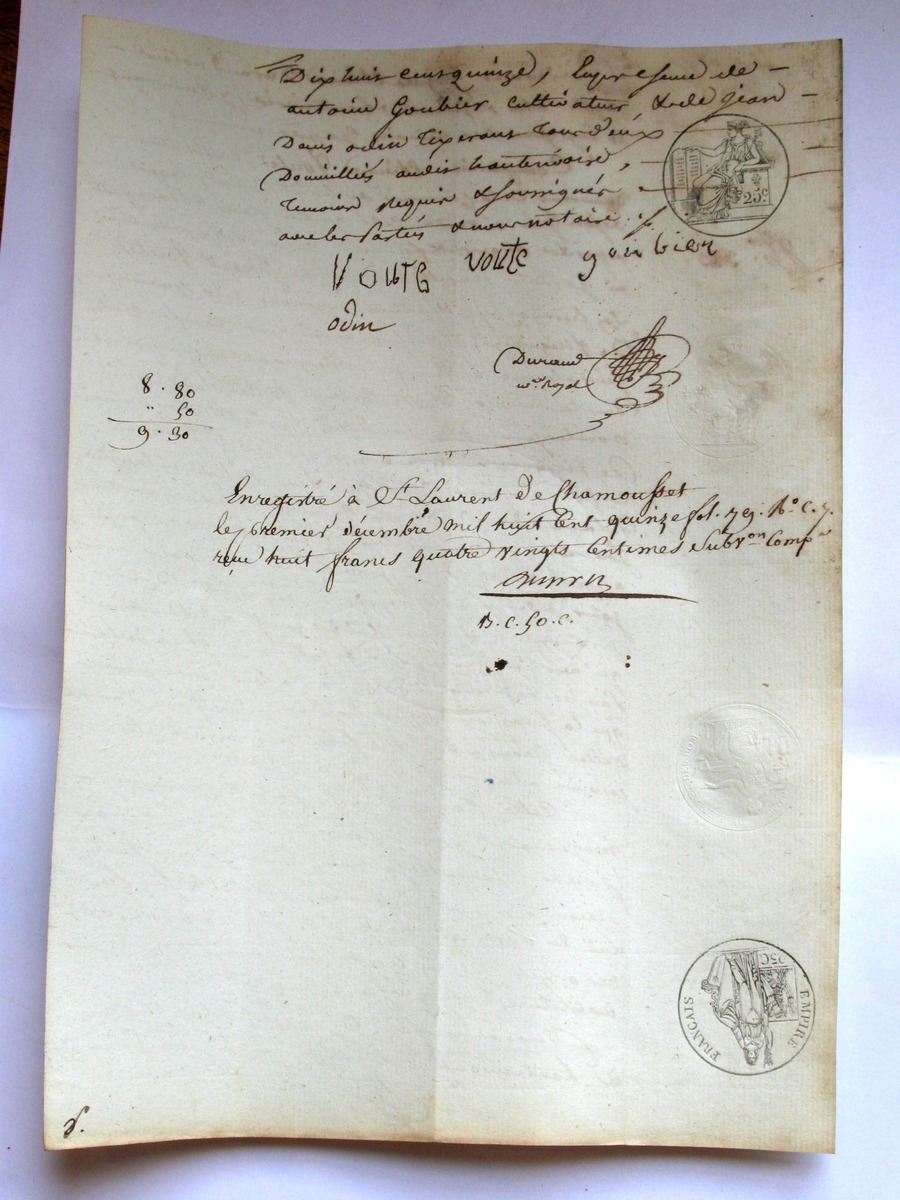 Dix huit cent quinze, En presence de -
antoine Goubier cultivateur & de jean -
Denis odin Tixerant Tous deux
Domiciliés audit hauterivoire,
Temoins requis & soussignés
avec les Parties & nous notaire ./.
VOUTE VOUTE goubier
odin
Durand
Royal
25c
8 . 80
" 50
9 . 30
Enregistré à St Laurent De Chamousset
le premier décembre mil huit Cent quinze fol. 79. Ro. C. 7.
reçu huit francs quatre vingts Centimes Subvon Compse
B. C. 50. C.
EMPIRE FRANÇAIS